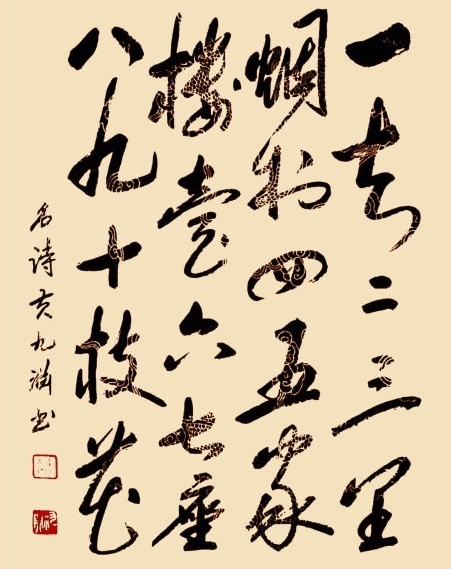 一去二三里
烟村四五家
楼台六七座
八九十枝花
名诗 黄九溪书